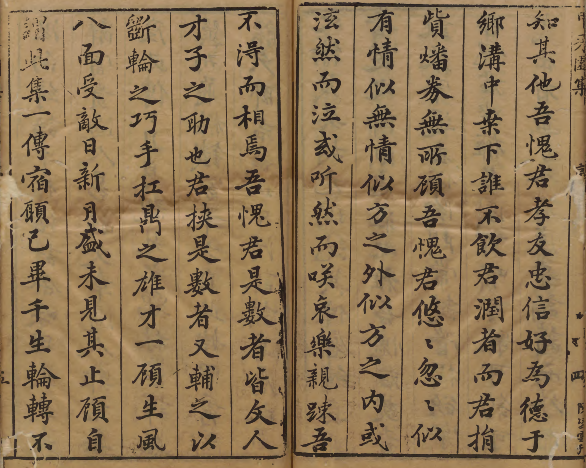 知其他吾愧君孝友忠信好為德于
鄉溝中乗下誰不飲君潤者而君捐
貲燔券無所顧吾愧君悠〻忽〻似
有情似無情似方之外似方之内或
泫然而泣或听然而咲哀樂親踈吾
不淂而相焉吾愧君是數者皆文人
才子之助也君挾是數者又輔之以
斵輪之巧手扛鼎之雄才一顧生風
八面受敵日新月盛未見其止顧自
謂此集一傳宿願已畢千生輪轉不